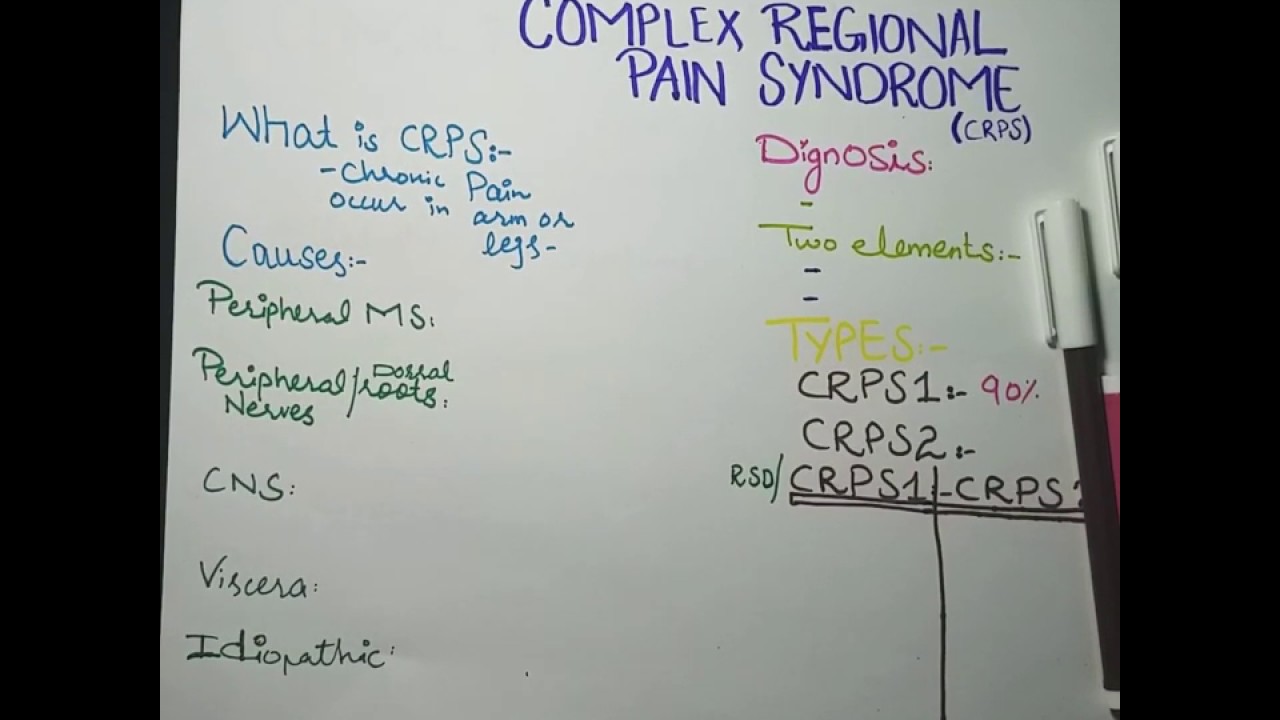 COMPLEX REGIONAL
PAIN SYNDROME
(CRPS)
What is CRPS:-
-Chronic Pain
occur in arm or
legs-
Causes:-
Peripheral MS:
Peripheral/Dorsal
Nerves roots:
CNS:
Viscera:
Idiopathic:
Dignosis:
-
Two elements:-
-
-
TYPES:-
CRPS1:- 90%
CRPS2:-
RSD/CRPS1|-CRPS